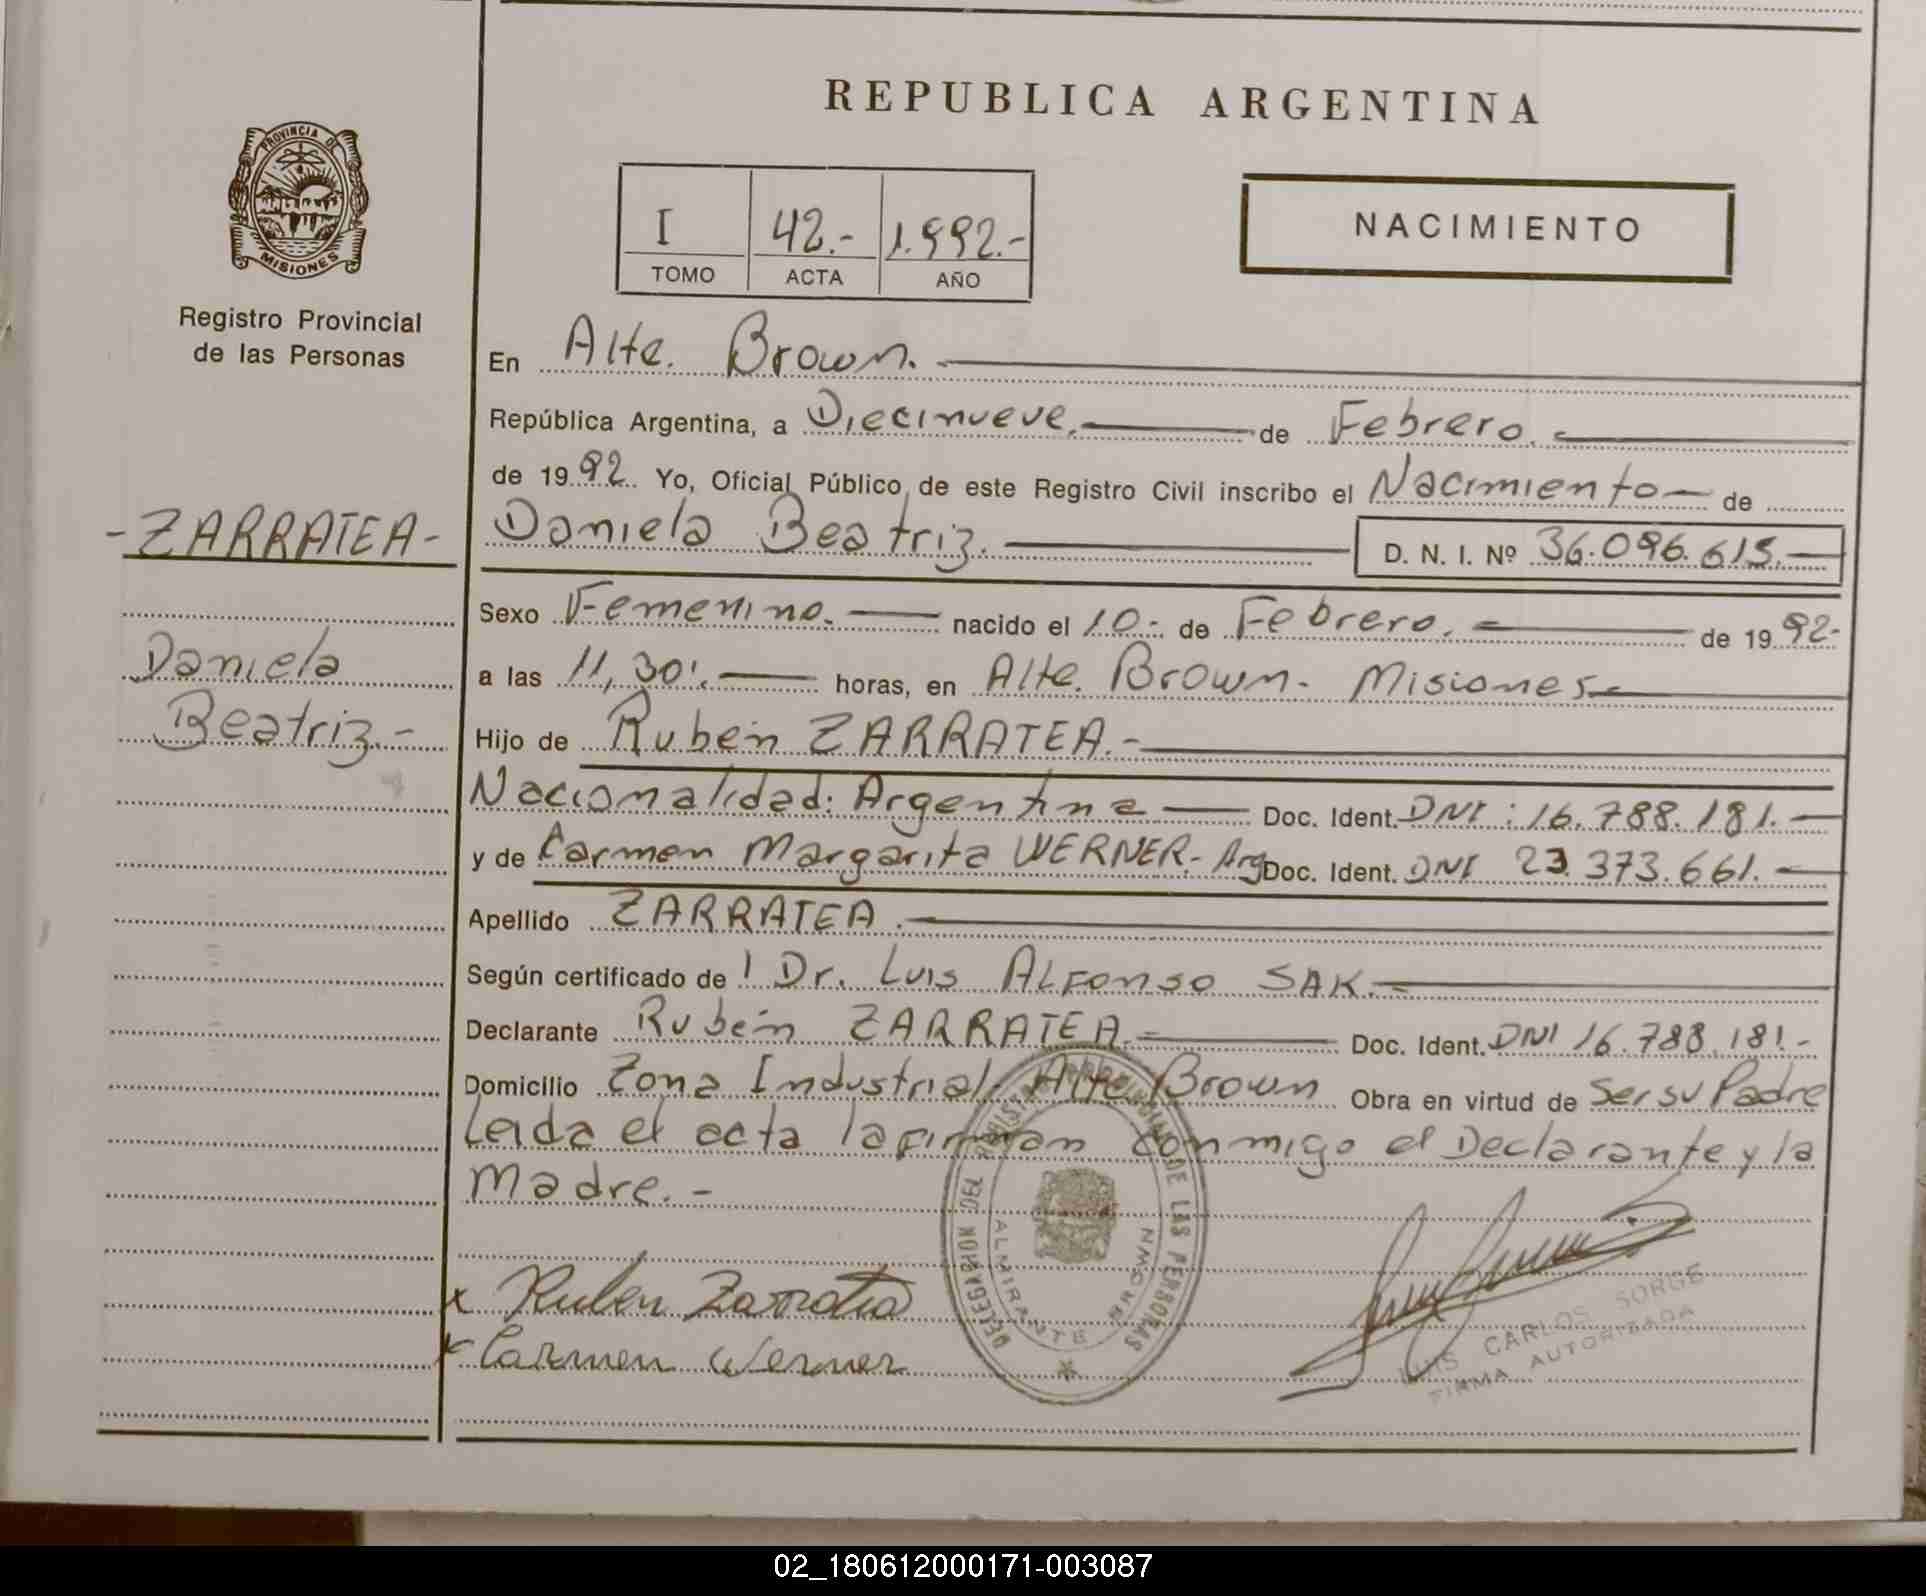 REPUBLICA ARGENTINA
PROVINCIA DE
MISIONES
Registro Provincial
de las Personas
I 42.- 1.992.-
TOMO ACTA AÑO
NACIMIENTO
En Alte. Brown.
República Argentina, a Diecinueve. de Febrero.
de 1992. Yo, Oficial Público de este Registro Civil inscribo el Nacimiento de
-ZARRATEA-
Daniela Beatriz. D. N. I. Nº 36.096.615.
Sexo Femenino. nacido el 10.- de Febrero. de 1992.-
Daniela
a las 11,30'. horas, en Alte. Brown. Misiones
Beatriz.-
Hijo de Rubén ZARRATEA.-
Nacionalidad: Argentina Doc. Ident. DNI: 16.788.181.
y de Carmen Margarita WERNER- Arg Doc. Ident. DNI 23.373.661.
Apellido ZARRATEA.
Según certificado de l Dr. Luis ALFonso SAK.
Declarante Rubén ZARRATEA. Doc. Ident. DNI 16.788.181.-
Domicilio Zona Industrial- Alte. Brown Obra en virtud de Ser su Padre
Leida el acta la firman conmigo el Declarante y la
Madre.-
DELEGACION DEL REGISTRO PROVINCIAL DE LAS PERSONAS
ALMIRANTE BROWN
x Ruben Zarratea
x Carmen Werner
LUIS CARLOS SORGE
FIRMA AUTORIZADA
02_180612000171-003087